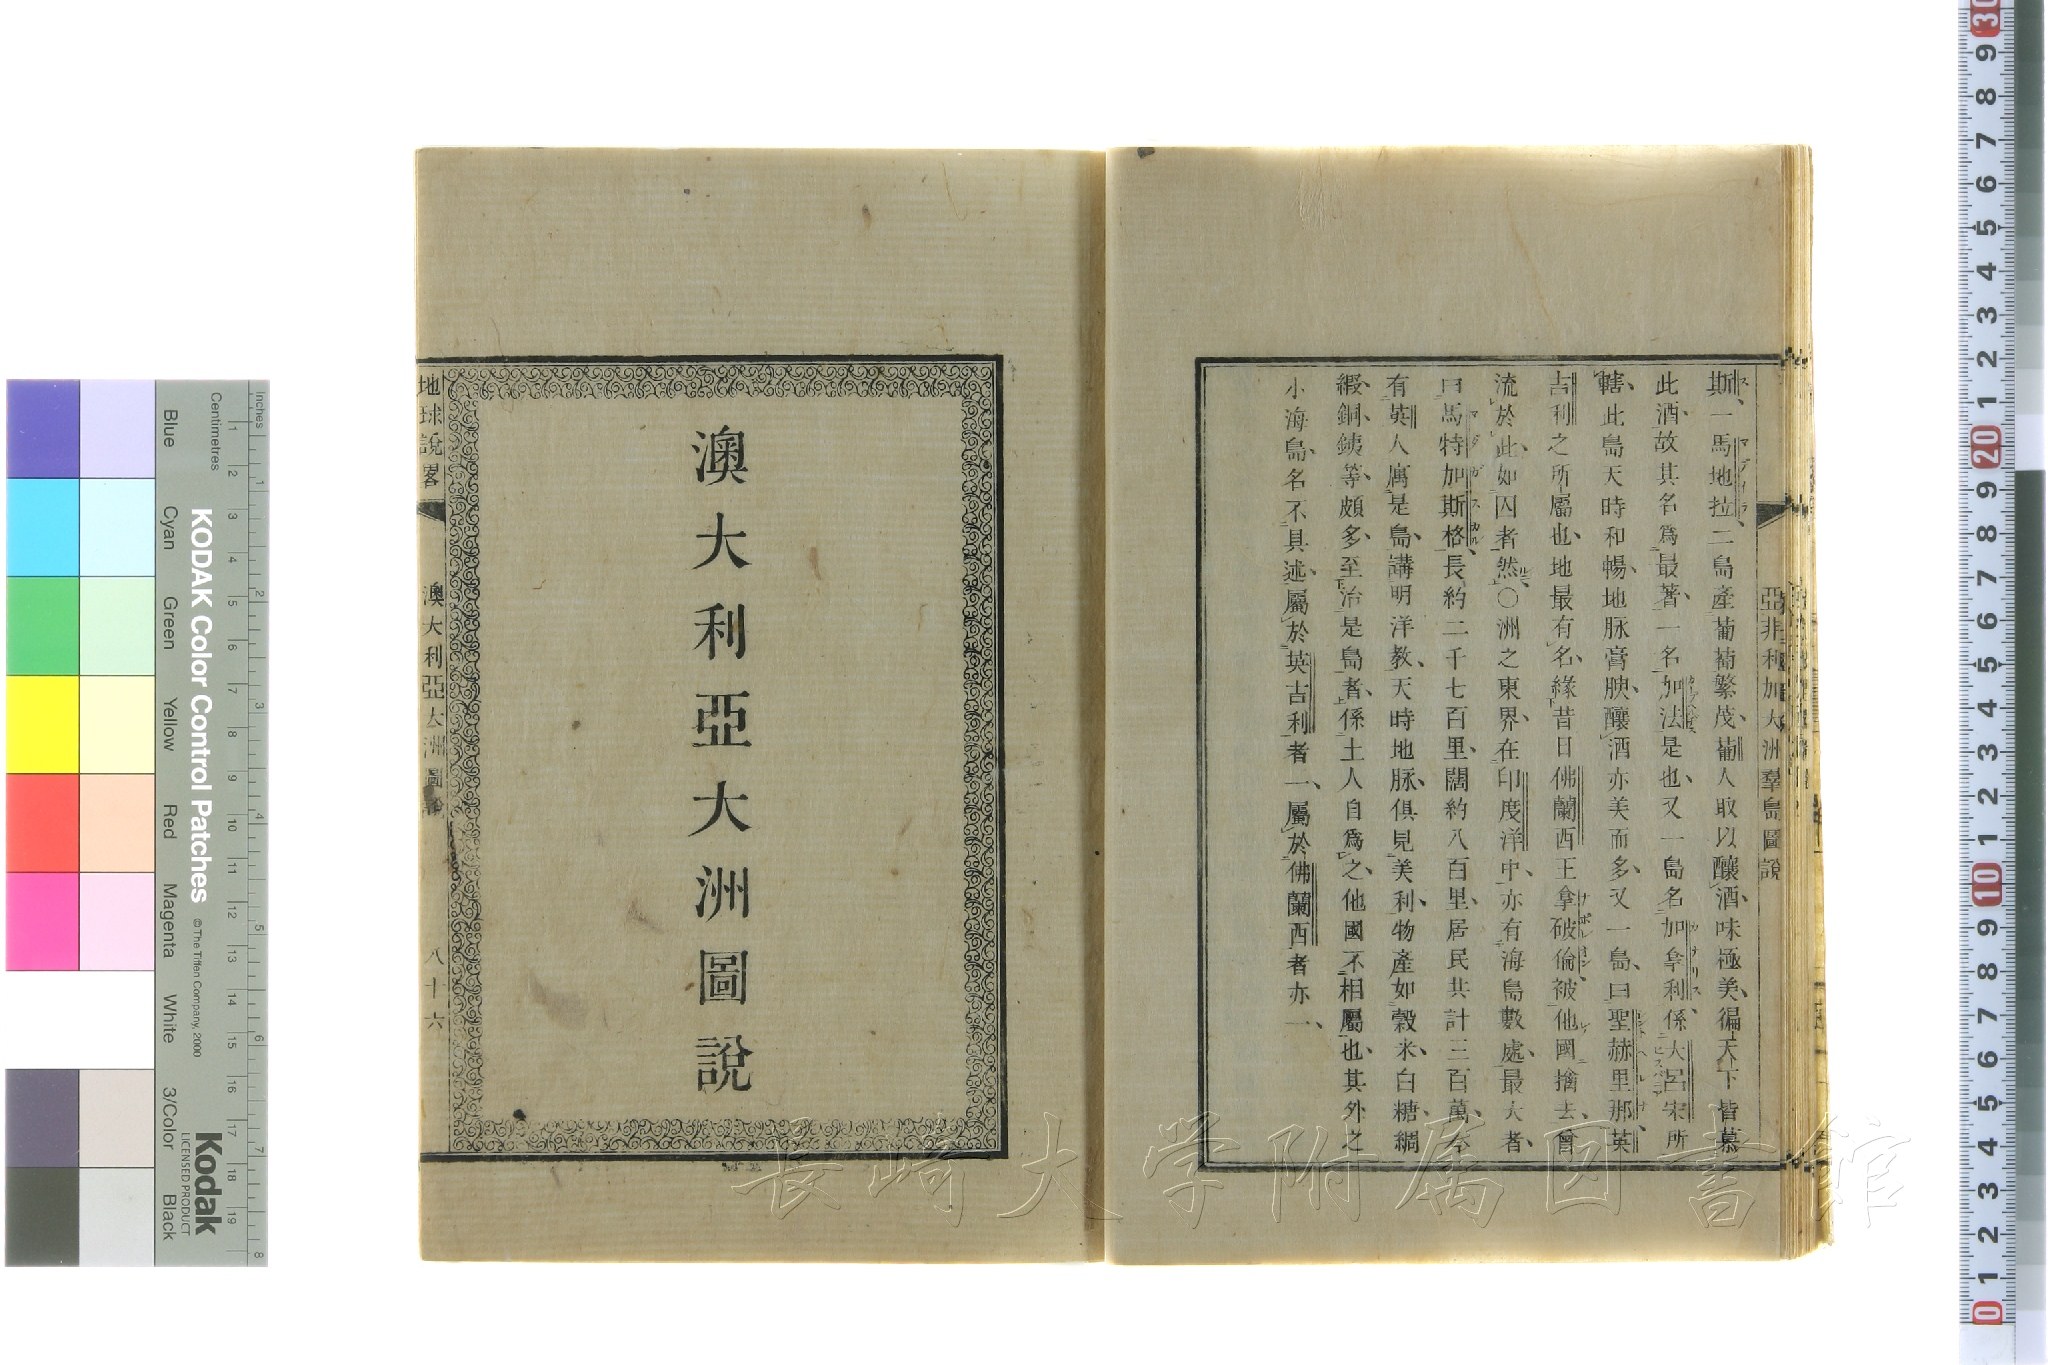 亞非利加大洲羣島圖說
斯、一馬地拉、二島產葡萄繁茂、葡人取以釀酒、味極美、徧天下皆慕
此酒、故其名爲最著、一名加法是也、又一島名加拿利、係大呂宋所
轄、此島天時和暢、地脉膏腴、釀酒亦美而多、又一島、曰聖赫里那、英
吉利之所屬也、地最有名、緣昔日佛蘭西王拿破倫、被他國擒去、曾
流於此、如囚者然、〇洲之東界、在印度洋中、亦有海島數處、最大者、
曰馬特加斯格、長約二千七百里、闊約八百里、居民共計三百萬、今
有英人寓是島、講明洋教、天時地脉、俱見美利、物產如穀米、白糖、綢
緞、銅、銕等、頗多、至治是島者、係土人自爲之、他國不相屬也、其外之
小海島、名不具述、屬於英吉利者一、屬於佛蘭西者亦一、
澳大利亞大洲圖說
地球說畧
澳大利亞大洲圖說
八十六
長崎大学附属図書館
KODAK Color Control Patches
© The Tiffen Company, 2000
Kodak
LICENSED PRODUCT
Inches
Centimetres
Blue
Cyan
Green
Yellow
Red
Magenta
White
3/Color
Black